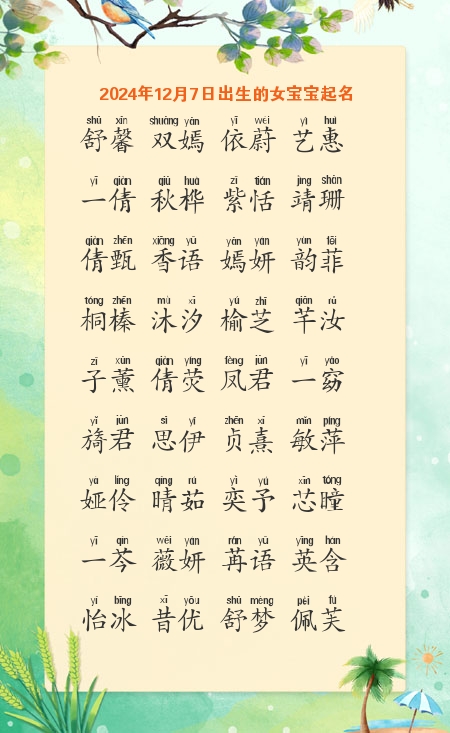 2024年12月7日出生的女宝宝起名
shū xīn shuāng yān yī wèi yì huì
舒馨 双嫣 依蔚 艺惠
yī qiàn qiū huà zǐ tián jìng shān
一倩 秋桦 紫恬 靖珊
qiàn zhēn xiāng yǔ yān yán yùn fēi
倩甄 香语 嫣妍 韵菲
tóng zhēn mù xī yú zhī qiān rǔ
桐榛 沐汐 榆芝 芊汝
zǐ xūn qiàn yíng fèng jūn yī yǎo
子薰 倩荧 凤君 一窈
yǐ jūn sī yī zhēn xī mǐn píng
旖君 思伊 贞熹 敏萍
yà líng qíng rú yì yǔ xīn tóng
娅伶 晴茹 奕予 芯瞳
yī qín wēi yán rǎn yǔ yīng hán
一芩 薇妍 苒语 英含
yí bīng xī yōu shū mèng pèi fú
怡冰 昔优 舒梦 佩芙